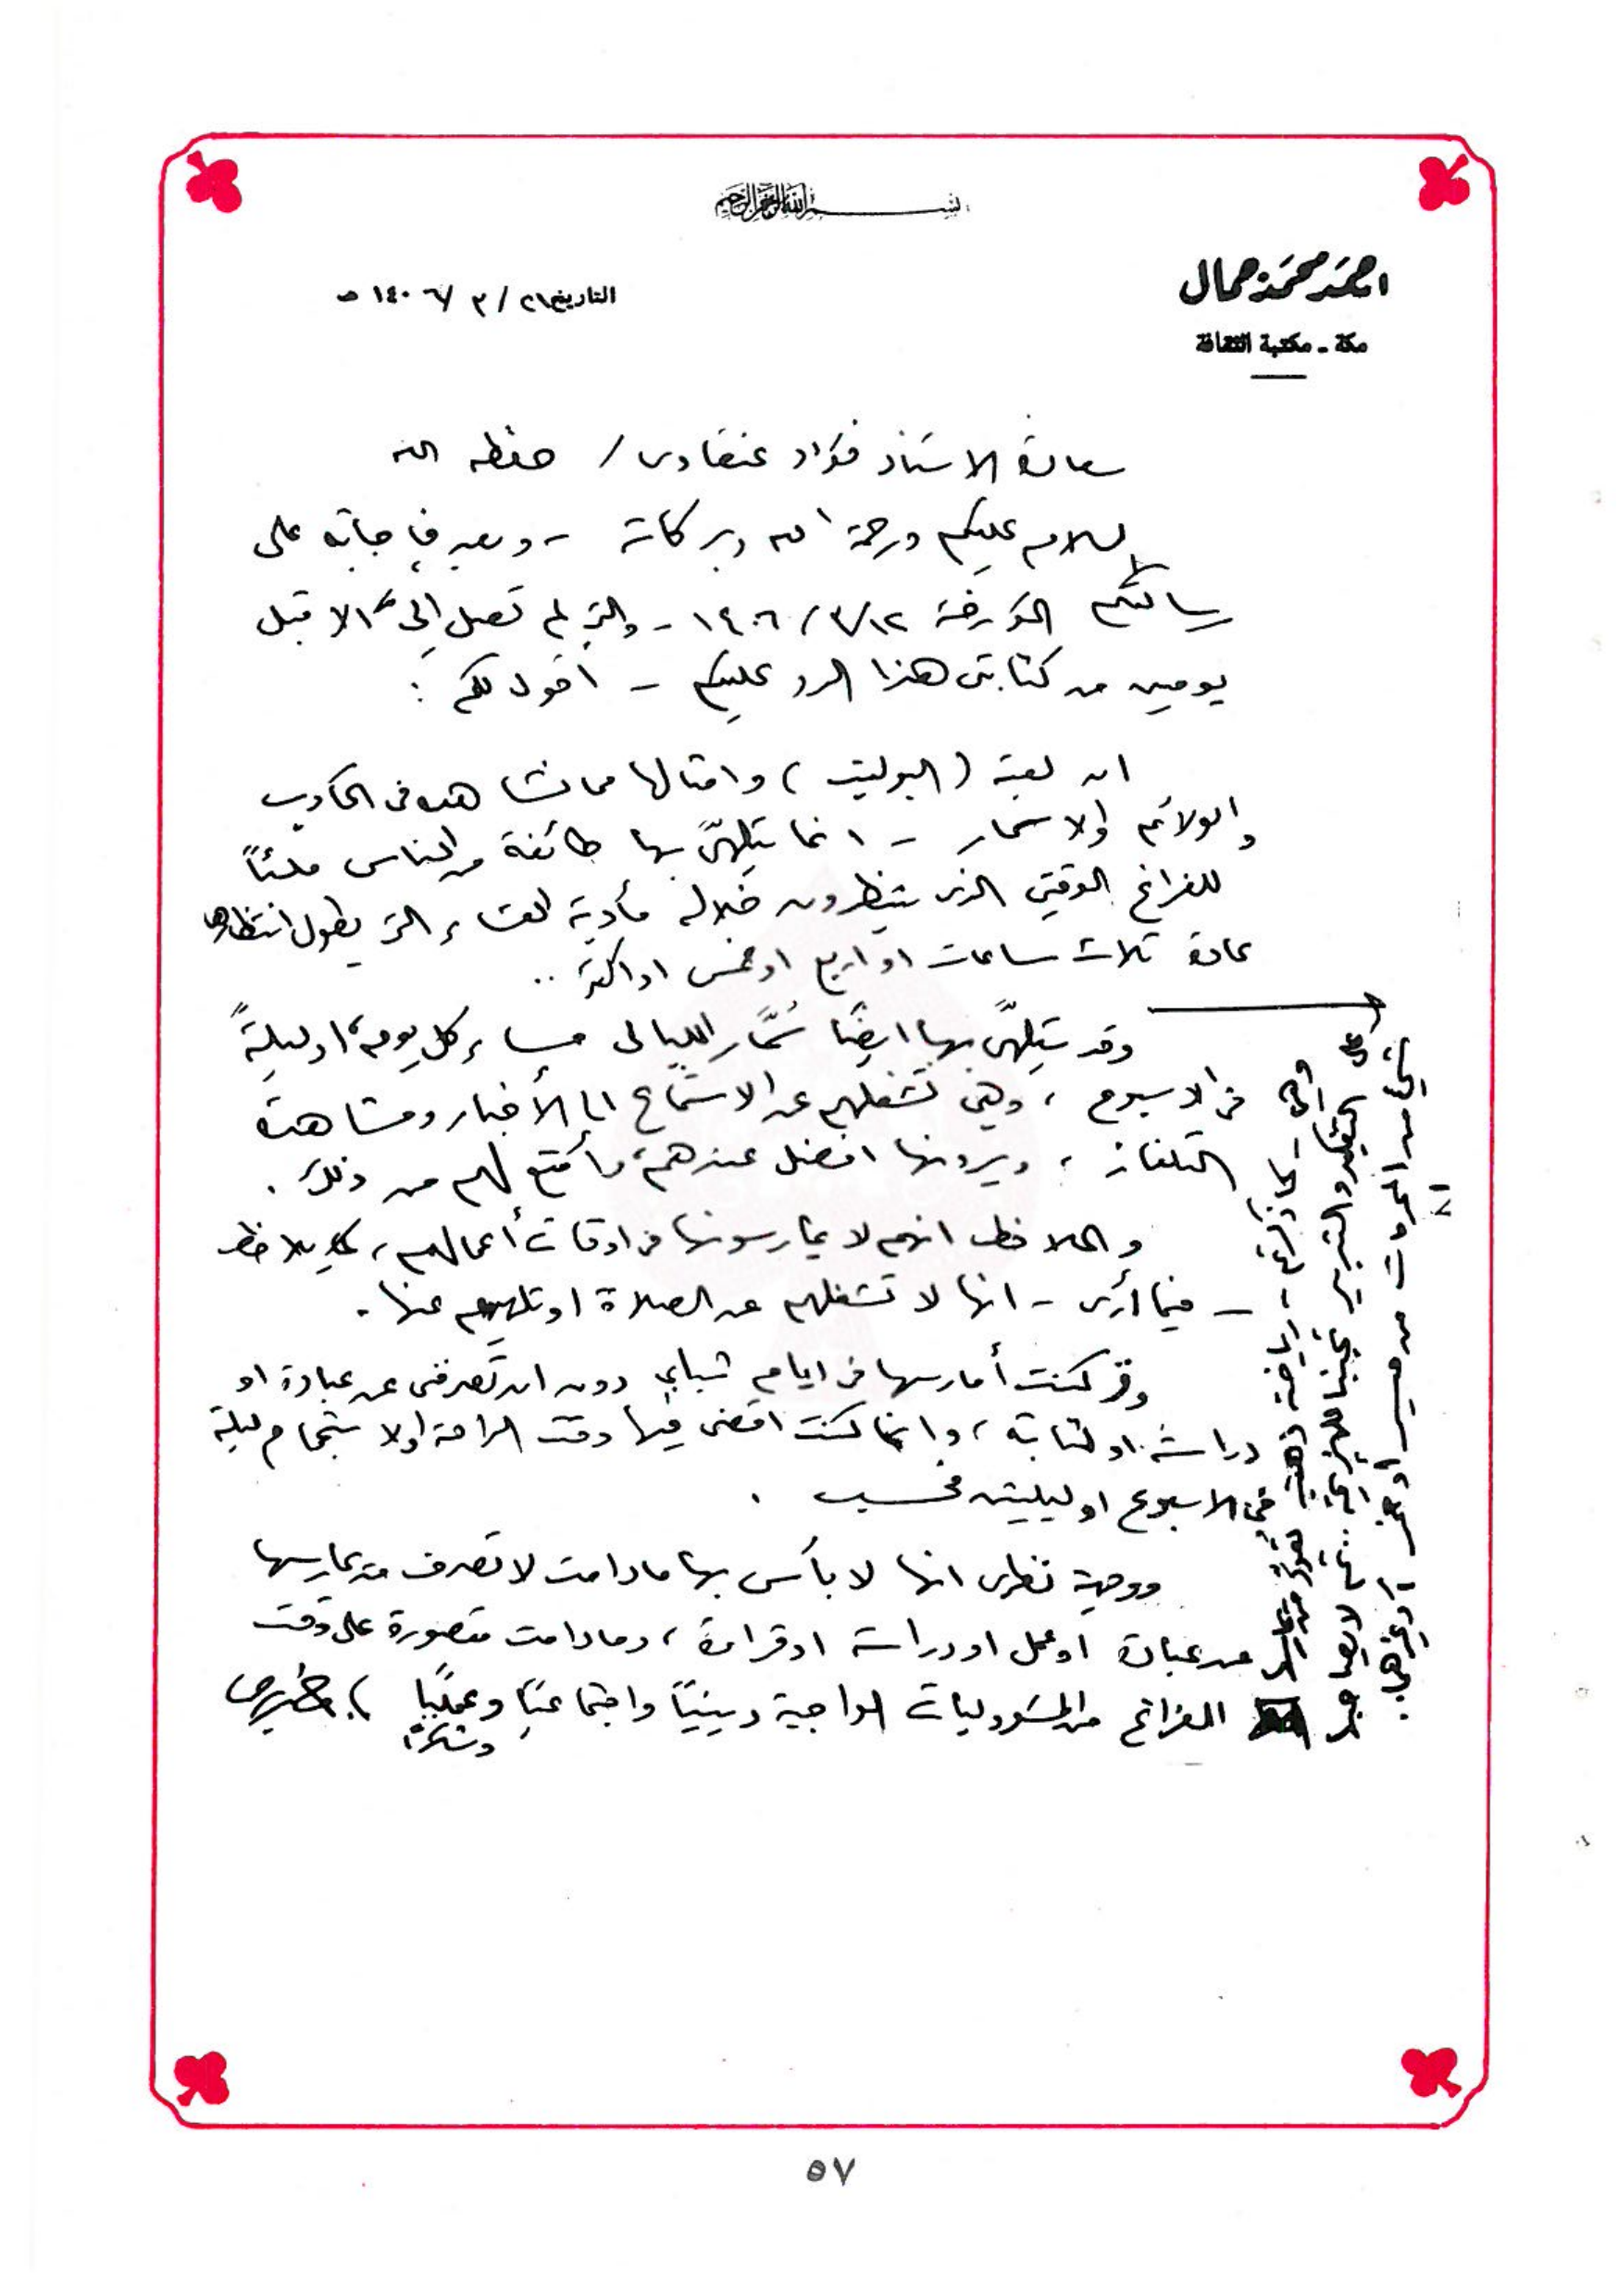 بسم الله الرحمن الرحيم
احمد محمد جمال
مكة - مكتبة الثقافة
التاريخ ٢١ / ٣ / ١٤٠٦ هـ
سعادة الاستاذ فؤاد عنقاوى / حفظه الله
السلام عليكم ورحمة الله وبركاته - وبعد فإجابة على
رسالتكم المؤرخة ١٤٠٦/٣/١٢ - والتي لم تصل إلىّ الا قبل
يومين من كتابتى هذا الرد عليكم - اقول لكم :
ان لعبة ( البولیت ) وامثالها مما نشاهده فى المآدب
والولائم والاسمار - انما يتلهّى بها طائفة من الناس ملئاً
للفراغ الوقتي الذى ينتظرون خلاله مأدبة العشاء التى يطول انتظارها
عادة ثلاث ساعات او اربع او خمس او اكثر ..
وقد يتلهّى بها ايضًا سُمَّار الليالى مساء كل يوم، او ليلةً
فى الاسبوع ، وهي تشغلهم عن الاستماع الى الأخبار ومشاهدة
التلفاز ، ويرونها افضل عندهم، وأمتع لهم من ذلك .
والملاحظ انهم لا يمارسونها فى اوقات أعمالهم، كما يلاحظ
- فيما أرى - انها لا تشغلهم عن الصلاة او تلهيهم عنها .
وقد كنت أمارسها فى ايام شبابي دون ان تصرفنى عن عبادة او
دراسة او كتابة ، وانما كنت اقضى فيها وقت الراحة او الاستجمام ليلة
في الاسبوع او ليلتين فحسب .
ووجهة نظرى انها لا بأس بها ما دامت لا تصرف من يمارسها
عن عبادة او عمل او دراسة او قراءة ، وما دامت مقصورة على وقت
الفراغ من المسؤوليات الواجبة دينيّاً واجتماعيّاً وعمليّاً
وشكراً
٥٧